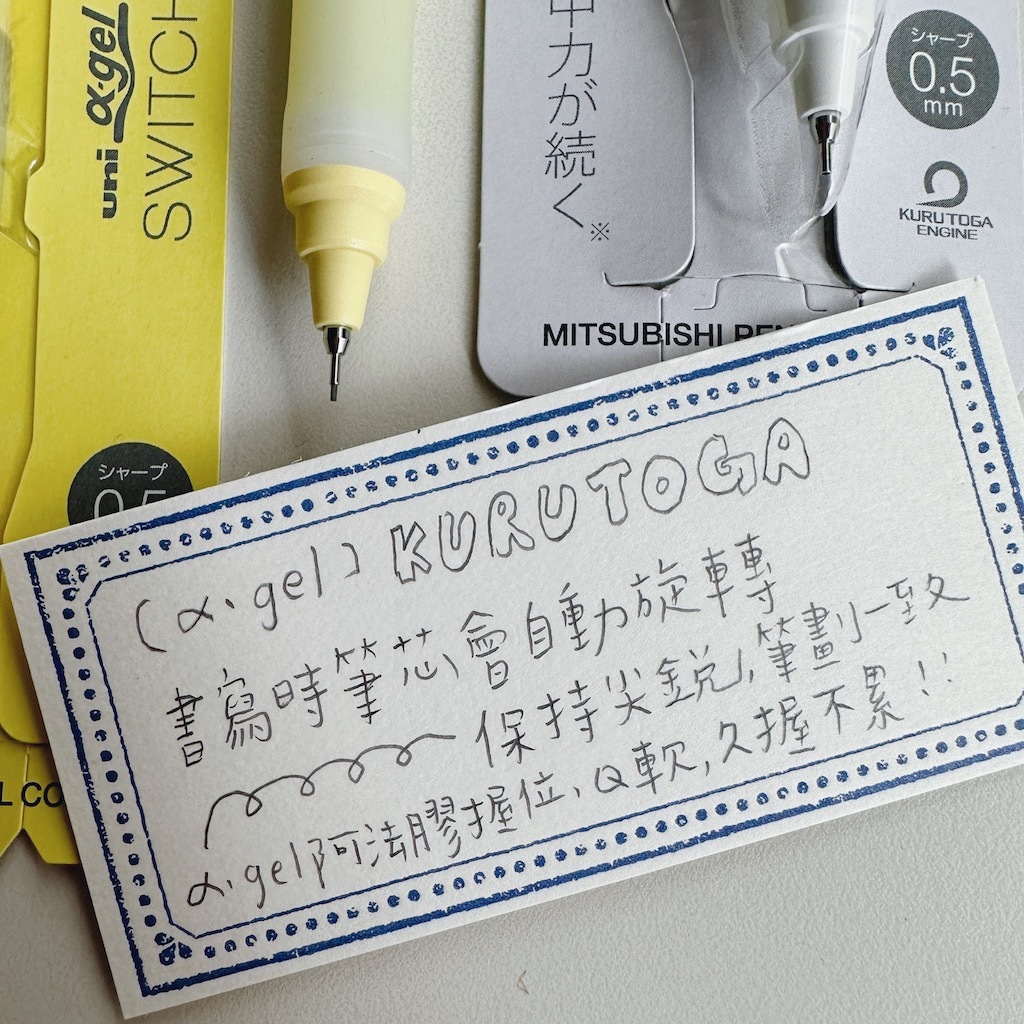 uni α·gel
SWITCH
シャープ
0.5
中力が続く。※
シャープ
0.5
mm
KURUTOGA
ENGINE
MITSUBISHI PEN
L CO
(α·gel) KURUTOGA
書寫時筆芯會自動旋轉
保持尖銳,筆劃一致
α·gel阿法膠握位,Q軟,久握不累!!